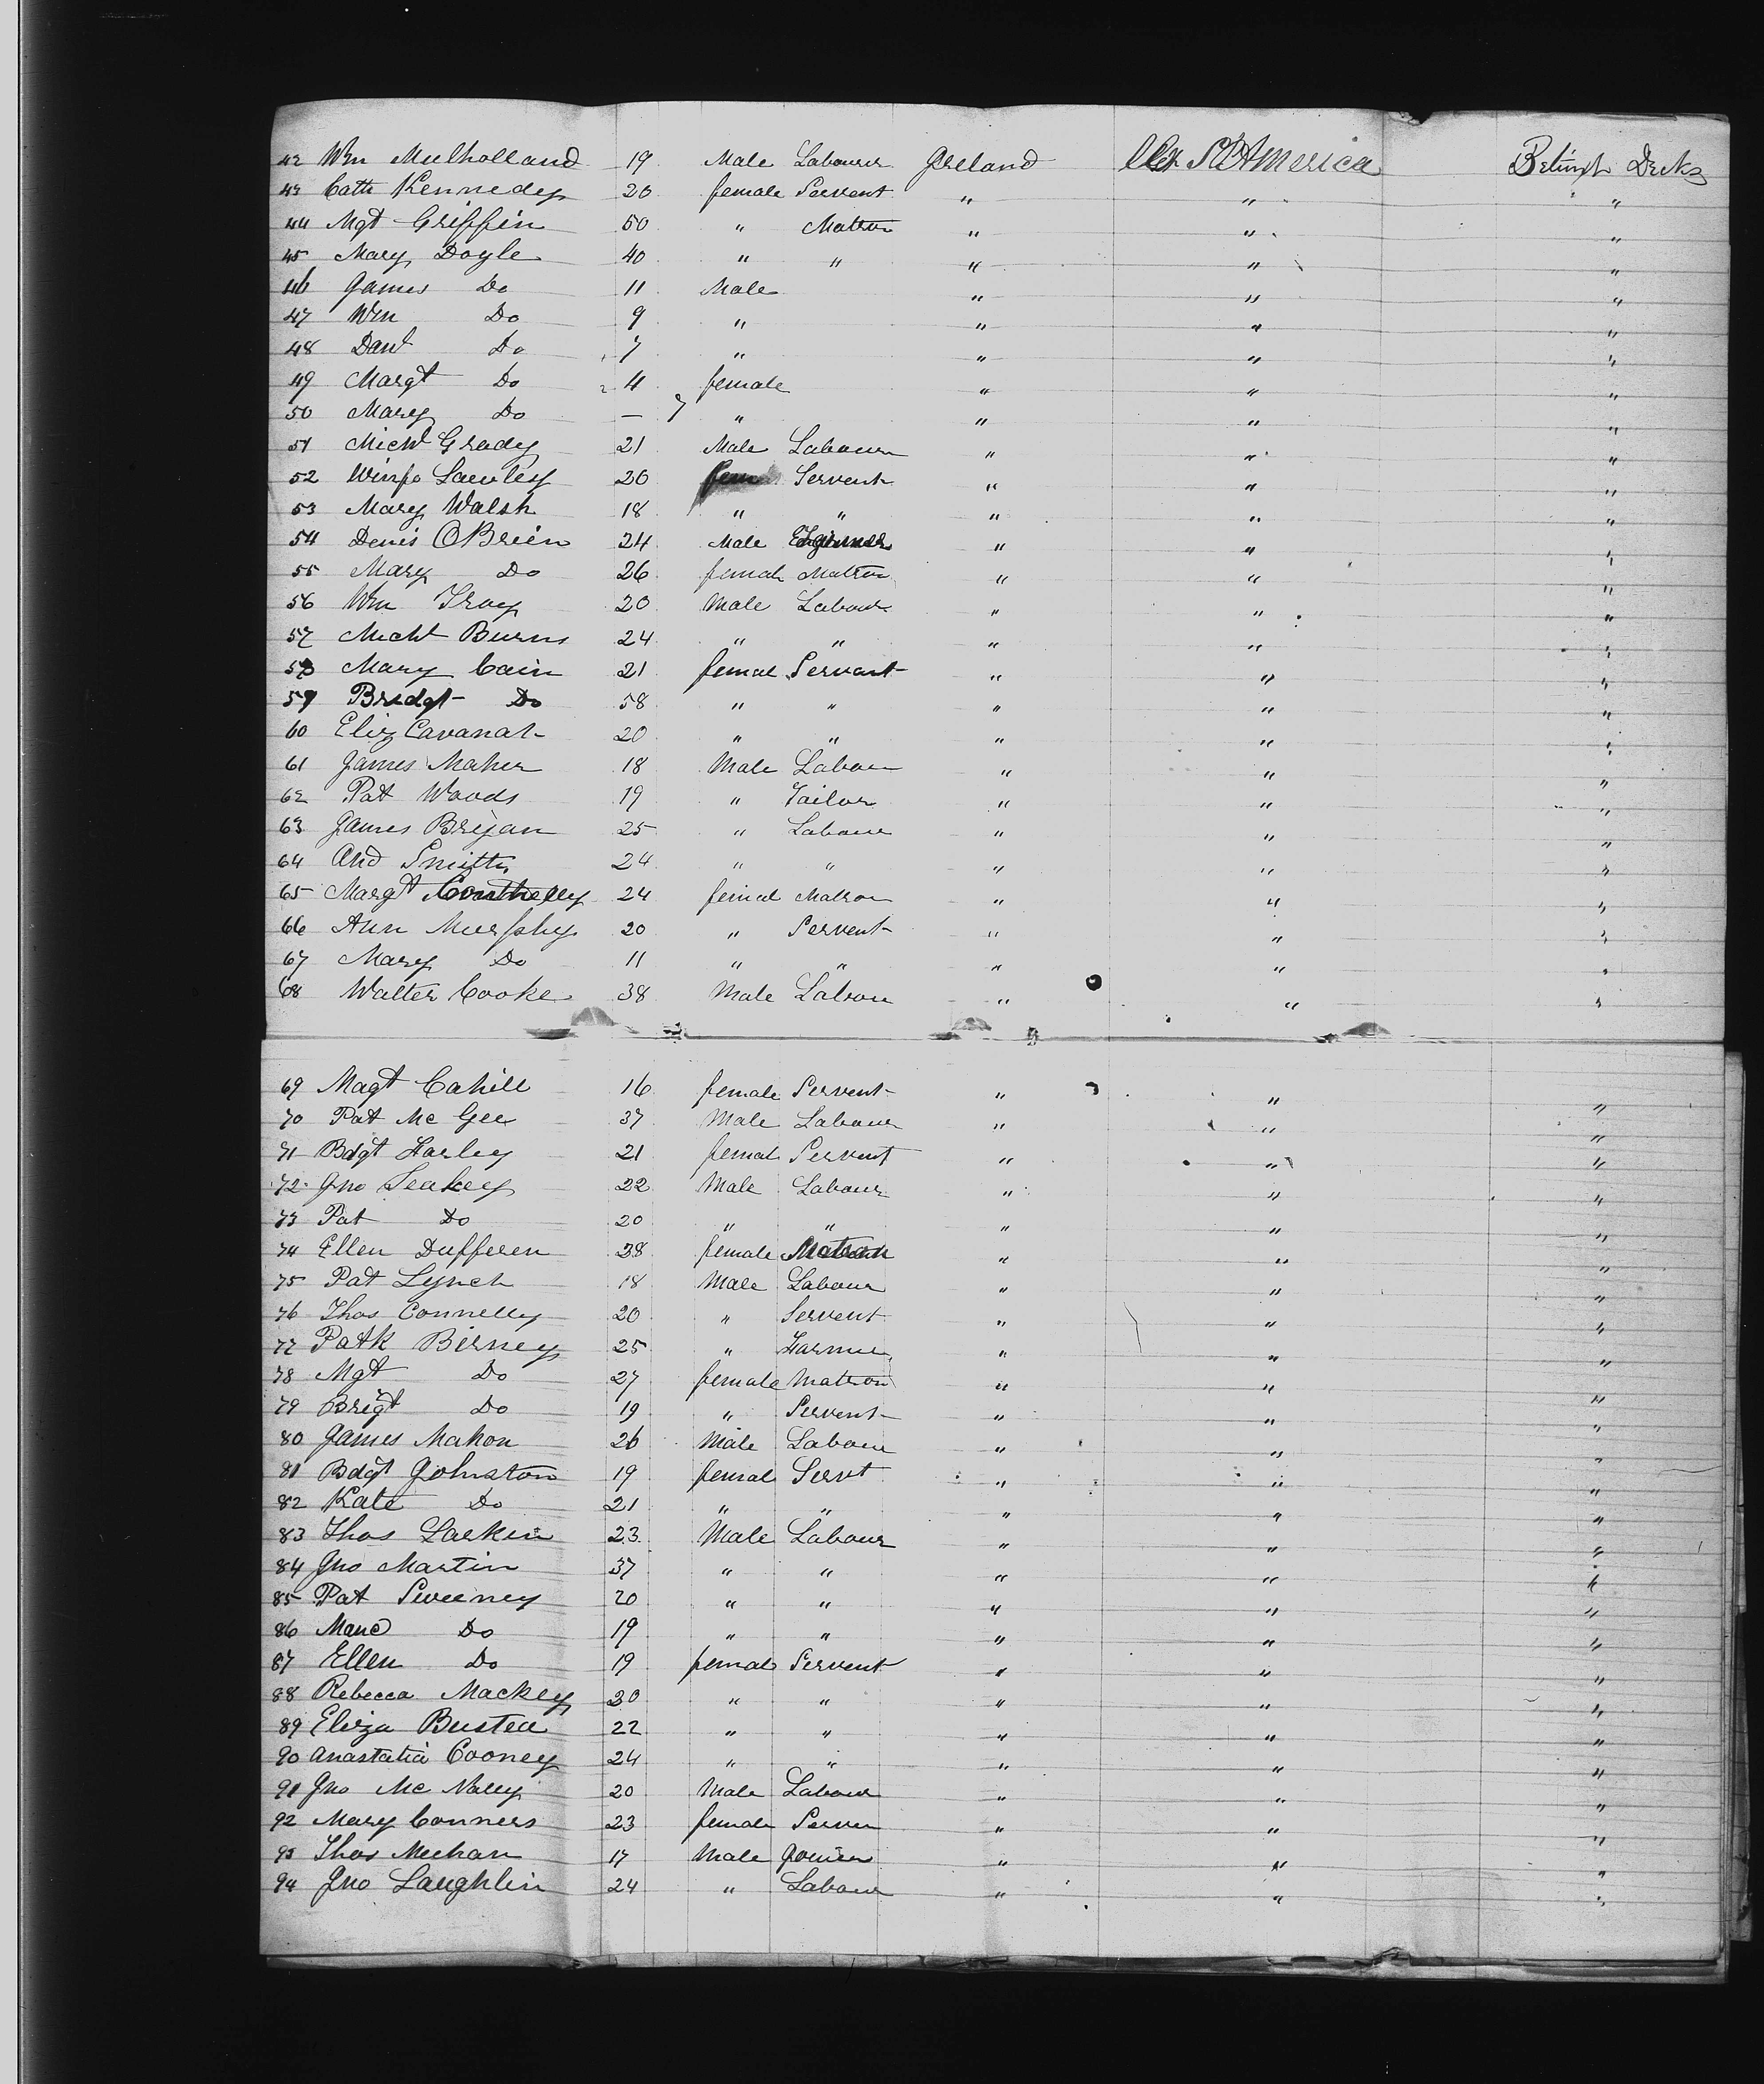 42 Wm Mulholland 19 Male Labourer Ireland U S America Betwixt Decks
43 Cath Kennedy 20 female Servent " " "
44 Mgt Griffin 50 " Matron " " "
45 Mary Doyle 40 " " " " "
46 James Do 11 Male " " "
47 Wm Do 9 " " " "
48 Danl Do 7 " " " "
49 Margt Do 4 female " " "
50 Mary Do — 7 " " " "
51 Michl Grady 21 Male Labour " " "
52 Winfo Lawley 20 fem Servent " " "
53 Mary Walsh 18 " " " " "
54 Denis OBrien 24 Male " " "
55 Mary Do 26 female Matron " " "
56 Wm Troy 20 Male Labour " " "
57 Michl Burns 24 " " " " "
58 Mary Cain 21 femal Servant " " "
59 Bridgt Do 58 " " " " "
60 Eliz Cavanah 20 " " " " "
61 James Maher 18 Male Labour " " "
62 Pat Woods 19 " Tailor " " "
63 James Bryan 25 " Labour " " "
64 And Smith 24 " " " " "
65 Margt 24 femal Matron " " "
66 Ann Murphy 20 " Servent " " "
67 Mary Do 11 " " " " "
68 Walter Cooke 38 Male Labour " " "
69 Magt Cahill 16 female Servent " " "
70 Pat Mc Gee 37 Male Labour " " "
71 Bdgt Farley 21 femal Servent " " "
72 Jno Leakey 22 Male Labour " " "
73 Pat Do 20 " " " " "
74 Ellen Dufferen 28 female Matron " " "
75 Pat Lynch 18 Male Labour " " "
76 Thos Connelly 20 " Servent " " "
77 Patk Birney 25 " Farmer " " "
78 Mgt Do 27 female Matron " " "
79 Brigt Do 19 " Servent " " "
80 James Mahon 26 Male Labour " " "
81 Bdgt Johnston 19 femal Servt " " "
82 Kate Do 21 " " " " "
83 Thos Larkin 23 Male Labour " " "
84 Jno Martin 37 " " " " "
85 Pat Sweeney 20 " " " " "
86 Do 19 " " " " "
87 Ellen Do 19 femal Servent " " "
88 Rebecca Mackey 20 " " " " "
89 Eliza Busted 22 " " " " "
90 Anastatia Cooney 24 " " " " "
91 Jno Mc Nally 20 Male Labour " " "
92 Mary Conners 23 female Serven " " "
93 Thos Meehan 17 Male Joiner " " "
94 Jno Laughlin 24 " Labour " " "